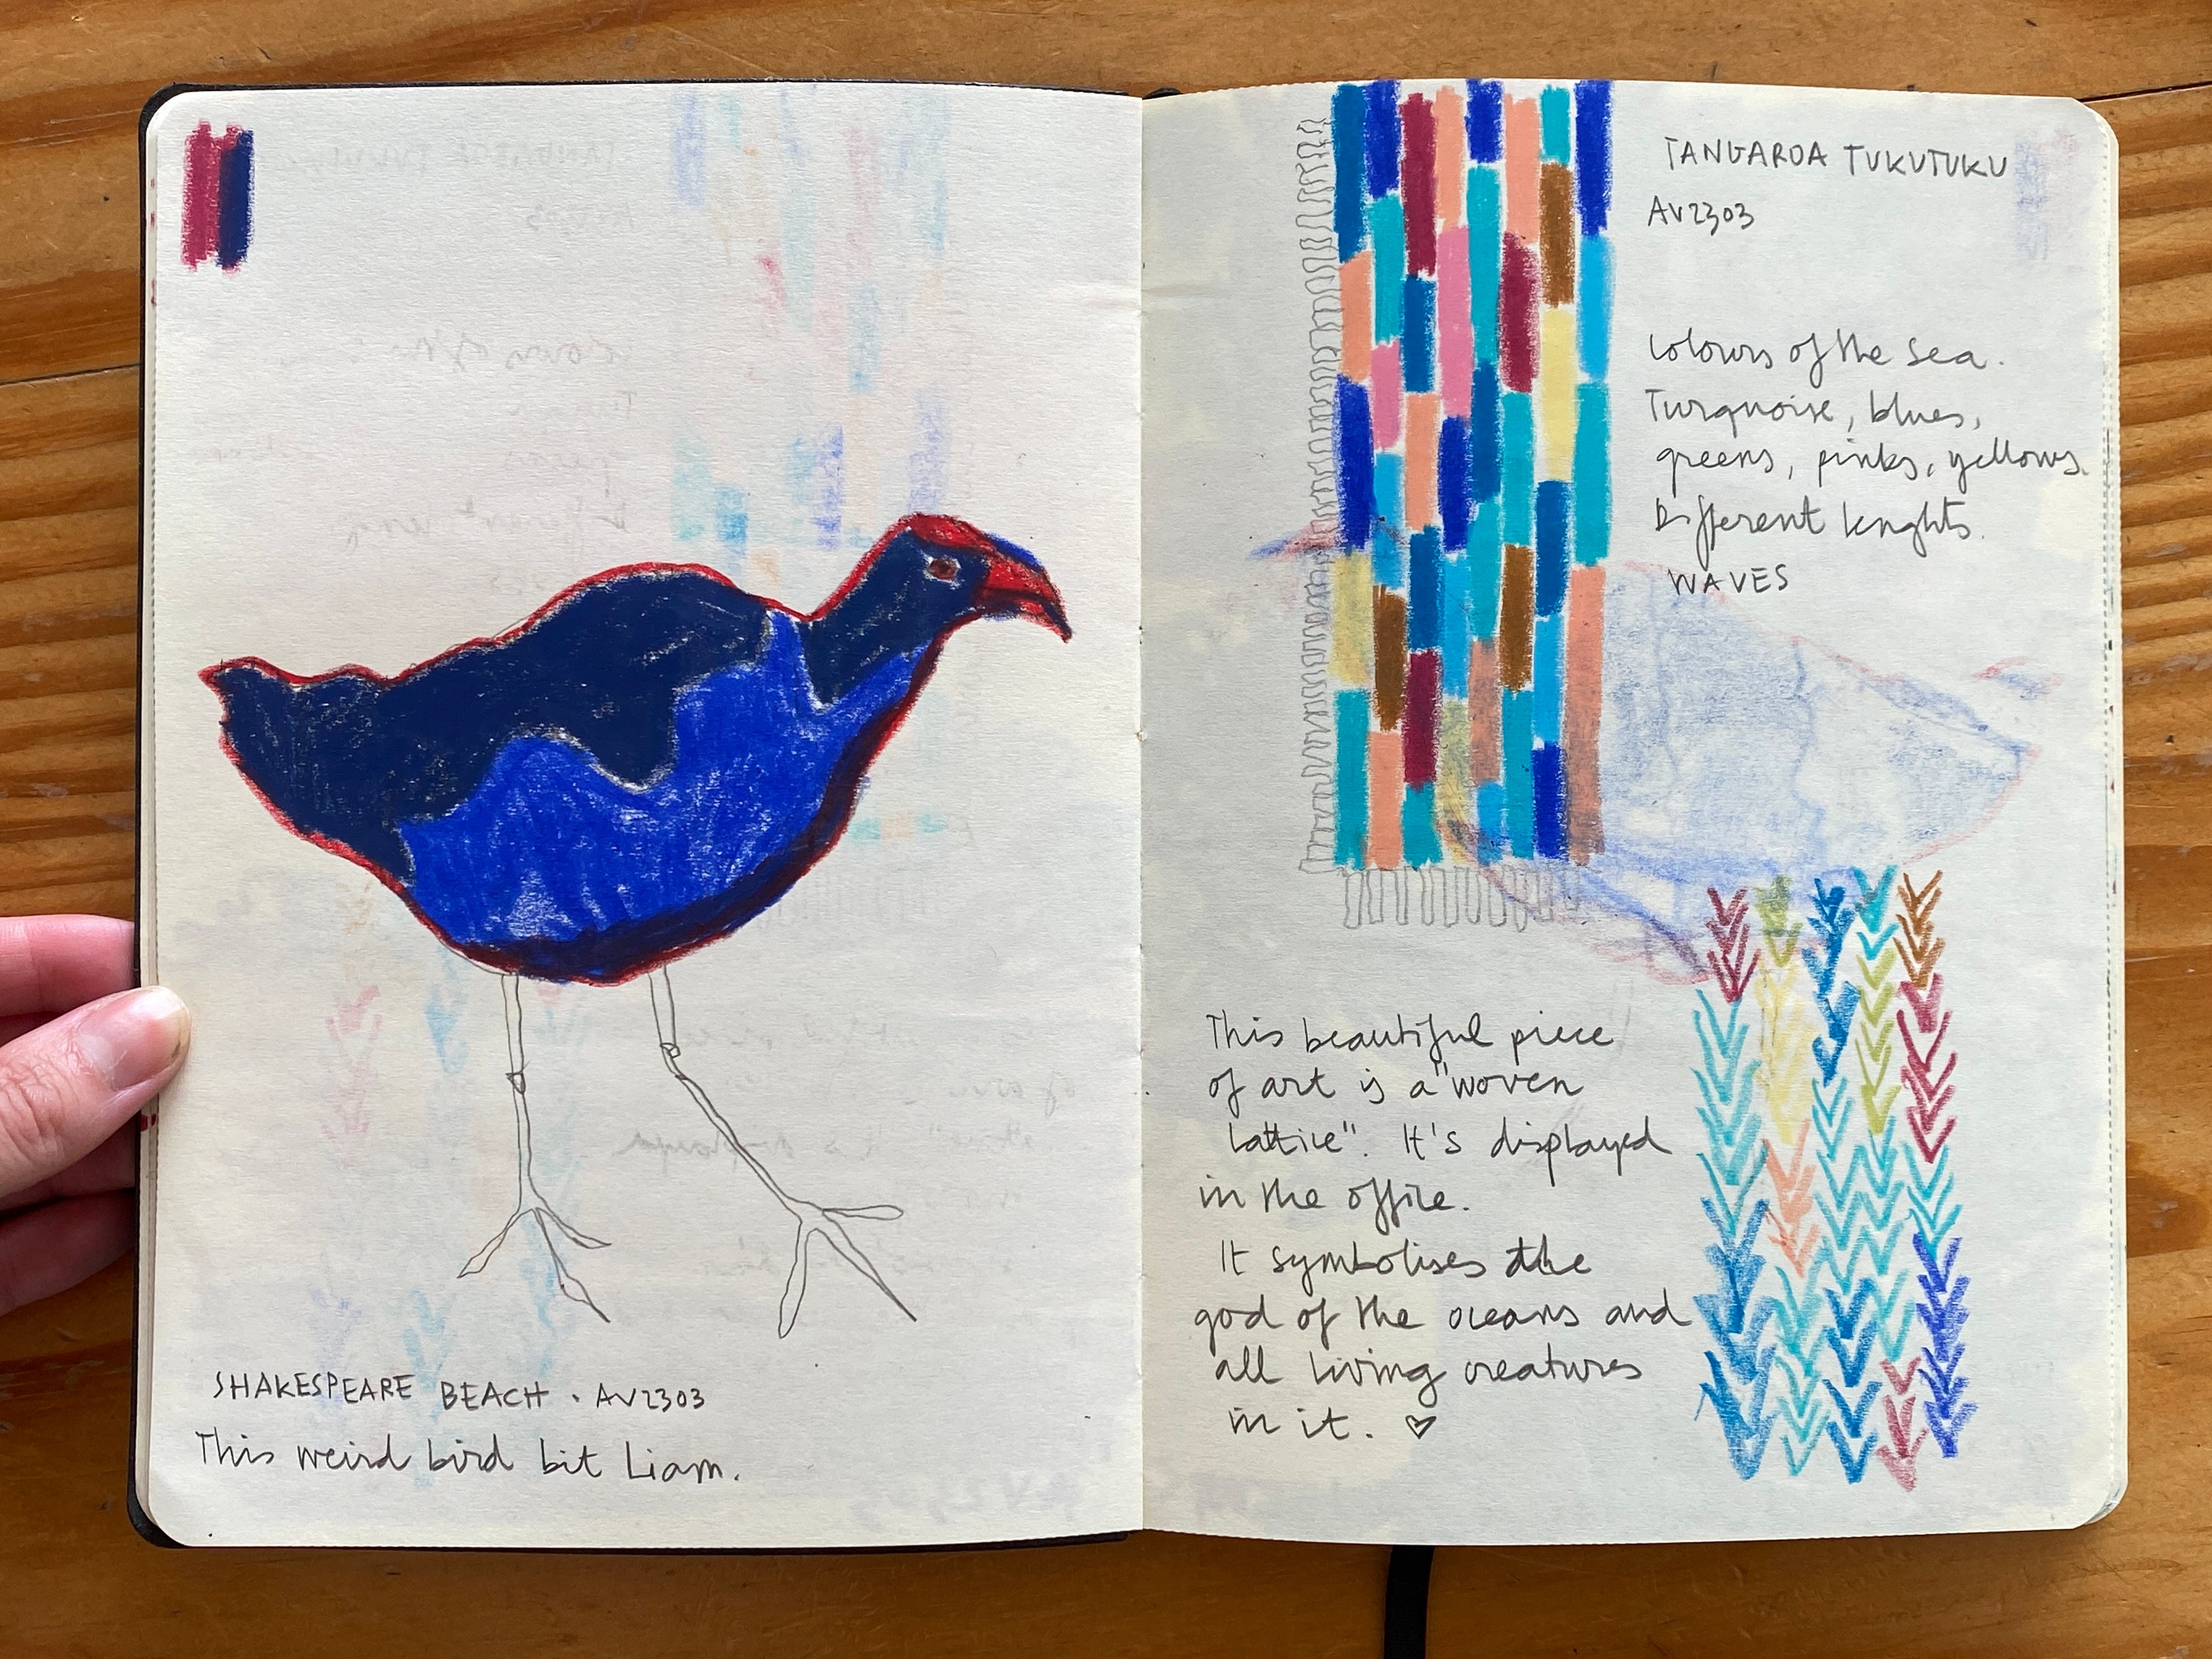 SHAKESPEARE BEACH . AV2303
This weird bird bit Liam.
TANGAROA TUKUTUKU
AV2303
Colours of the sea.
Turquoise, blues,
greens, pinks, yellows.
Different lenghts.
WAVES
This beautiful piece
of art is a "woven
lattice". It's displayed
in the office.
It symbolises the
god of the oceans and
all living creatures
in it. ♡